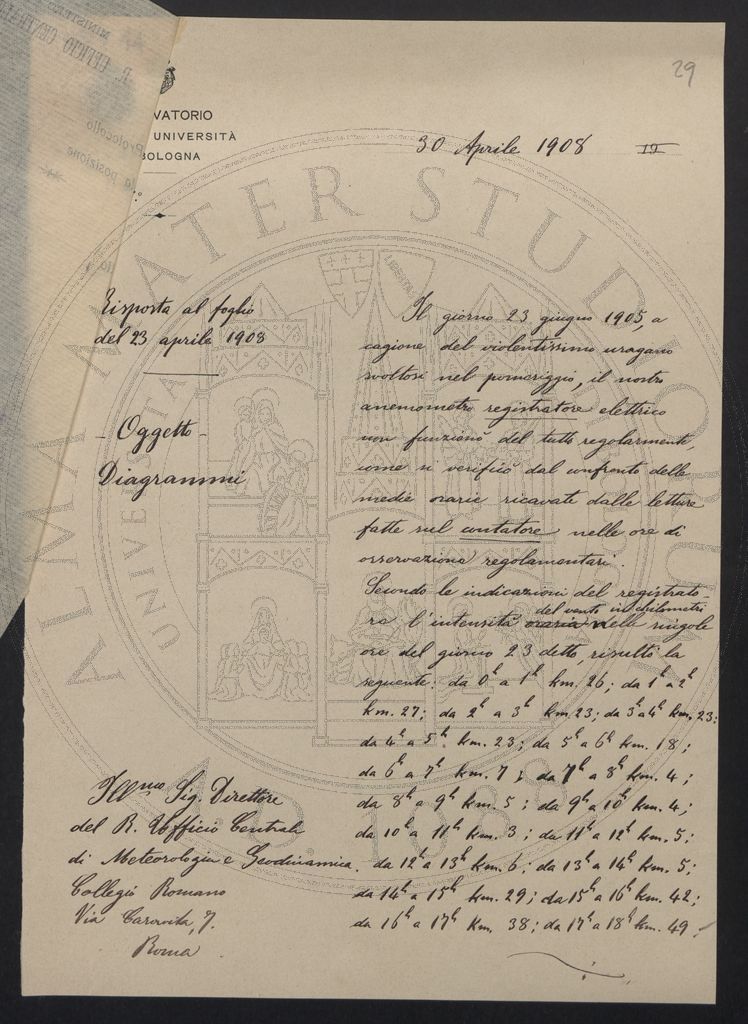 29
VATORIO
UNIVERSITÀ
BOLOGNA
30 Aprile 1908 19
Risposta al foglio
del 23 aprile 1908
- Oggetto -
Diagrammi
Il giorno 23 giugno 1905, a
cagione del violentissimo uragano
svoltosi nel pomeriggio, il nostro
anemometro registratore elettrico
non funzionò del tutto regolarmente,
come si verificò dal confronto delle
medie orarie ricavate dalle letture
fatte sul contatore nelle ore di
osservazione regolamentari.
Secondo le indicazioni del registrato-
re l'intensità oraria del vento in chilometri nelle singole
ore del giorno 23 detto, risultò la
seguente: da 0h a 1h km. 26; da 1h a 2h
km. 27; da 2h a 3h km. 23; da 3h a 4h km. 23;
da 4h a 5h km. 23; da 5h a 6h km. 18;
da 6h a 7h km. 7; da 7h a 8h km. 4;
da 8h a 9h km. 5; da 9h a 10h km. 4;
da 10h a 11h km. 3; da 11h a 12h km. 5;
da 12h a 13h km. 6; da 13h a 14h km. 5;
da 14h a 15h km. 29; da 15h a 16h km. 42;
da 16h a 17h Km. 38; da 17h a 18h km. 49;
Illmo Sig. Direttore
del R. Ufficio Centrale
di Meteorologia e Geodinamica.
Collegio Romano
Via Caravita, 7.
Roma
ALMA MATER STUDIORUM
A.D. 1088